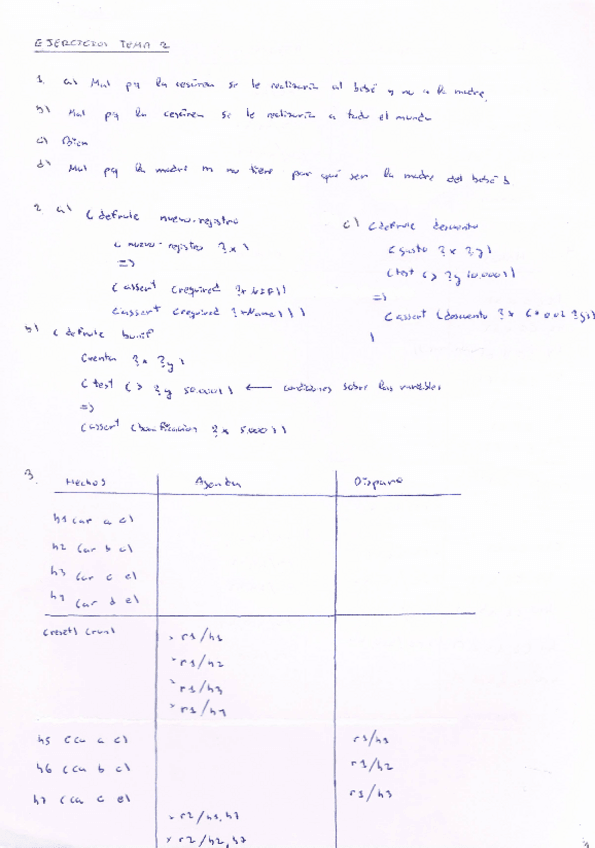 EJERCICIOS TEMA 2
1. a) Mal pq la cesárea se le realizaría al bebé y no a la madre.
b) Mal pq la cesárea se le realizaría a todo el mundo
c) Bien
d) Mal pq la madre m no tiene por qué ser la madre del bebé b
2. a) (defrule nuevo-registro
(nuevo-registro ?x)
=>
(assert (required ?x NIF))
(assert (required ?x Name)))
b) (defrule bonif
(renta ?x ?y)
(test (> ?y 50.000)) ← condiciones sobre las variables
=>
(assert (bonificacion ?x 5.000))
c) (defrule descuento
(gasto ?x ?y)
(test (> ?y 10.000))
=>
(assert (descuento ?x (* 0.02 ?y))
)
3. Hechos Agenda Disparo
h1 (ar a c)
h2 (ar b c)
h3 (ar c e)
h4 (ar d e)
(reset) (run)
× r1/h1
× r1/h2
× r1/h3
× r1/h4
h5 (ca a c) r1/h1
h6 (ca b c) r1/h2
h7 (ca c e) r1/h3
× r2/h1,h7
× r2/h2,h7